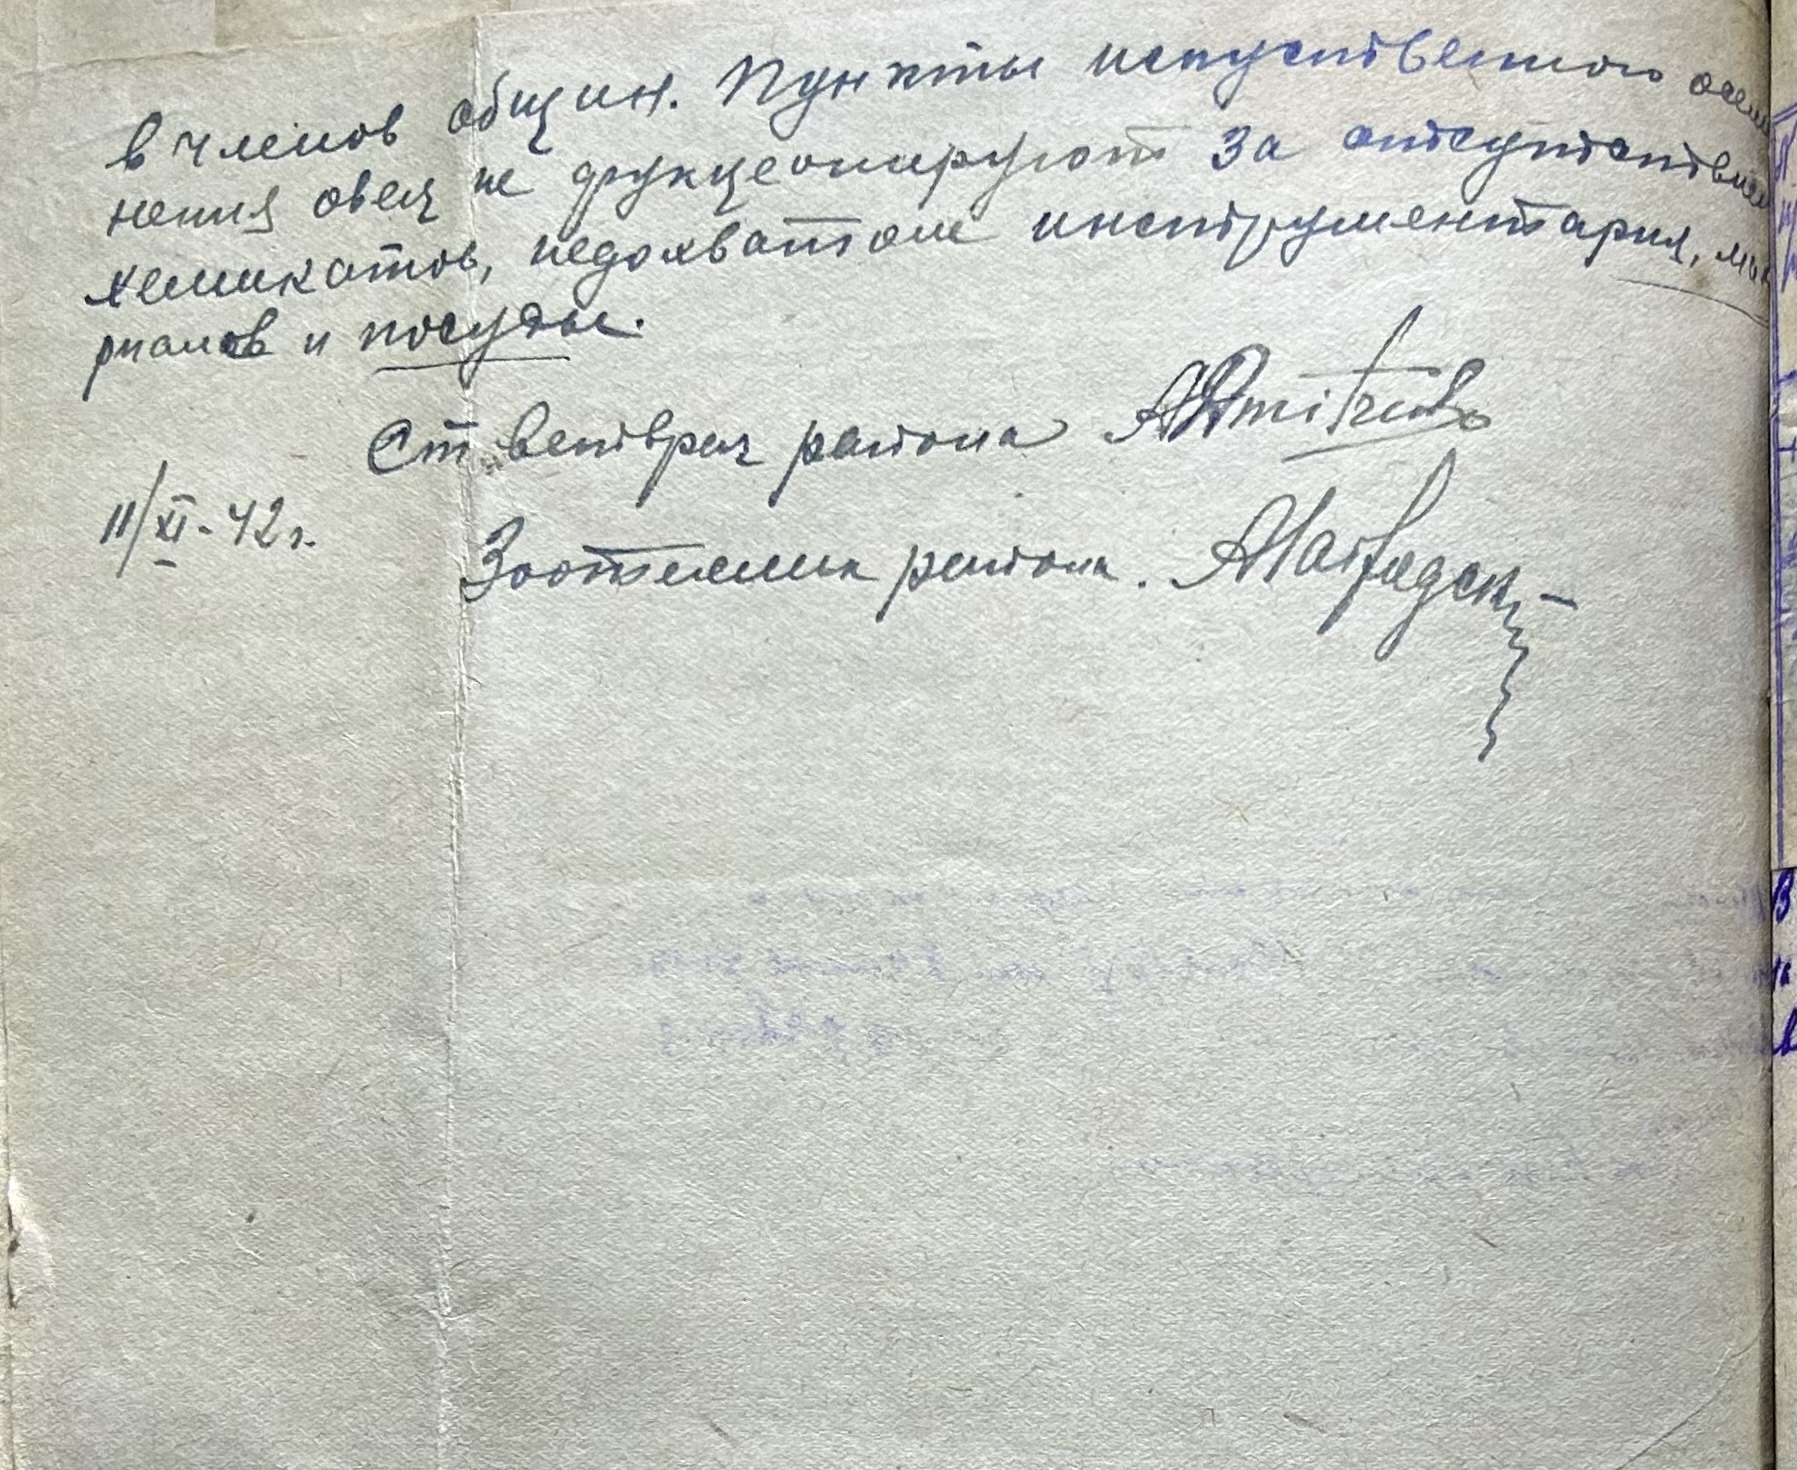 в членов общин. Пункты искуственного осем
нения овец не функцеонируют за отсутствием
хемикатов, недохватом инструментария, ма
риалов и посуды.
Ст ветврач района
11/XI-42г.
Зоотехник района.